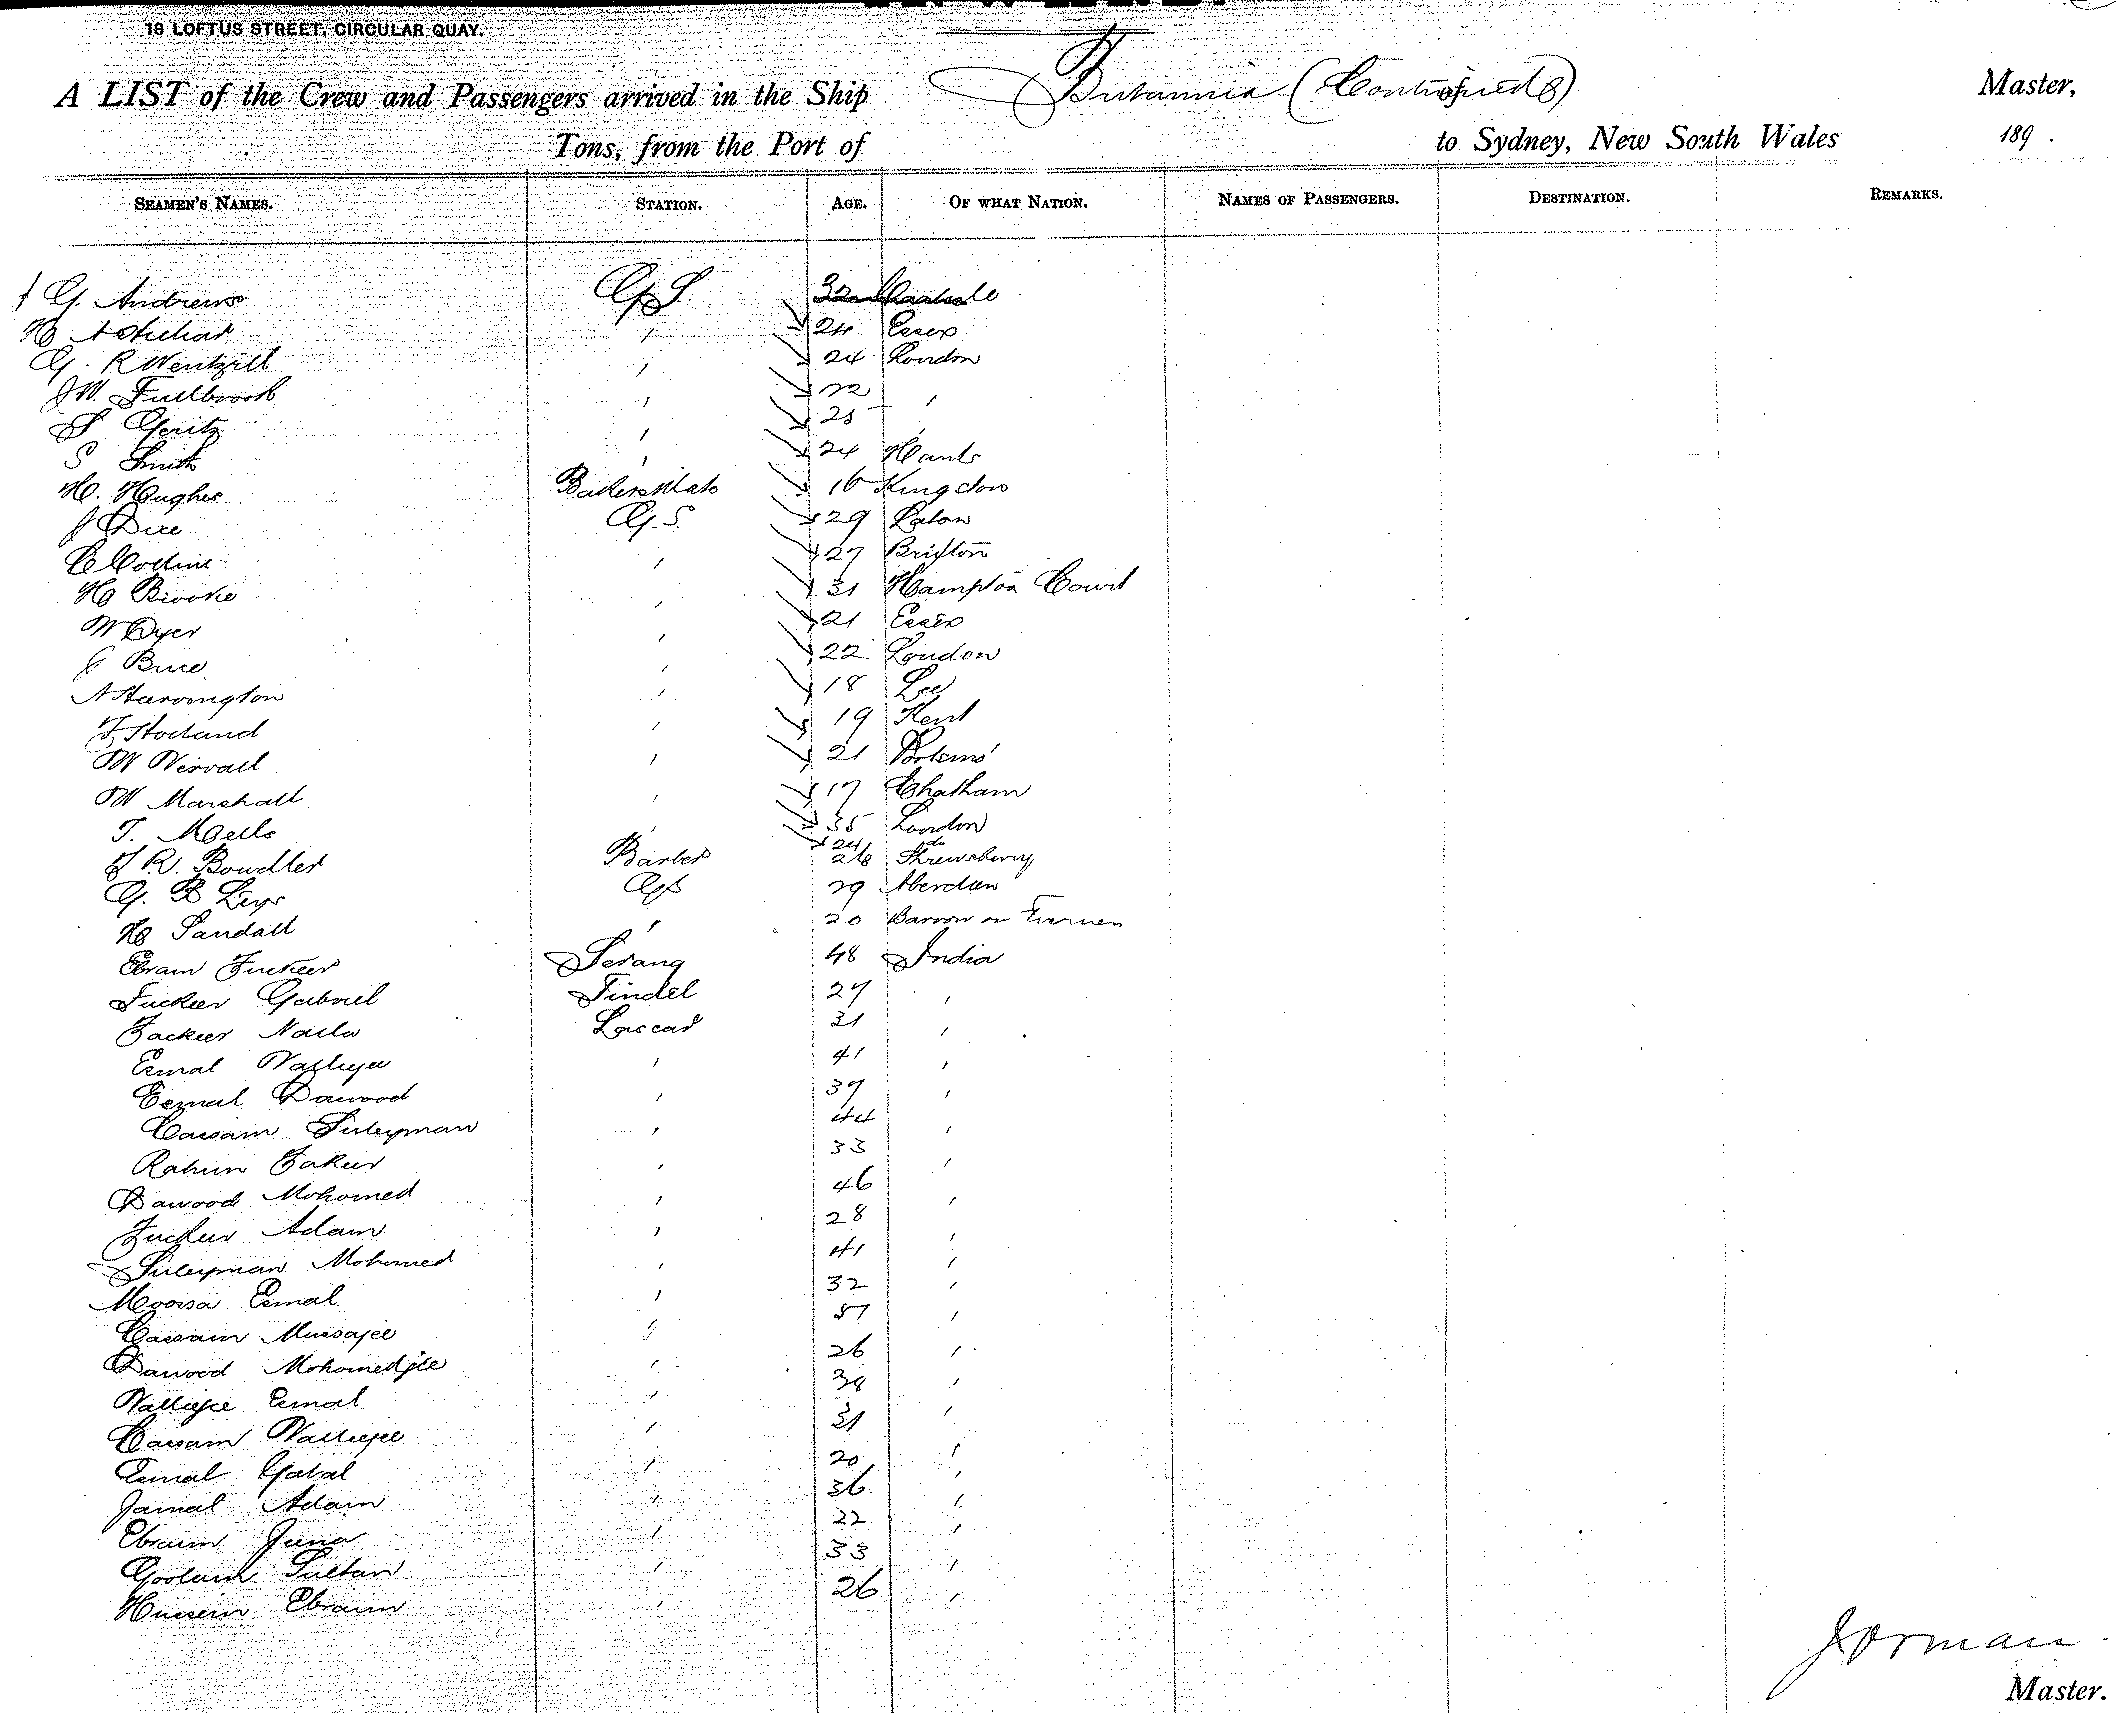 18 LOFTUS STREET, CIRCULAR QUAY.
A LIST of the Crew and Passengers arrived in the Ship Britannia (Continued) of Master,
Tons, from the Port of to Sydney, New South Wales 189 .
SEAMEN'S NAMES. STATION. AGE. OF WHAT NATION. NAMES OF PASSENGERS. DESTINATION. REMARKS.
G. Andrews G S 32 Carlisle
H " 24 Essex
G. R Wentzell " 24 London
J W. Fullbrook " 22 "
S Goritz " 25 "
S Smith " 24 Hants
H. Hughes Bakers Mate 16 Kingston
J Dice G. S. 29
C Collins " 27 Brixton
H Brooke " 31 Hampton Court
W Dyer " 21 Essex
Bure " 22 London
A Harrington " 18 Lee
F Holland " 19 Kent
W " 21
W Marshall " 17 Chatham
T. Mells " 35 London
24 do
J R. Bowdler Barber 26 Shrewsbury
G. B Leys G S 29 Aberdeen
H Sandall " 20 Barrow on Furness
Ebram Fuckeer Serang 48 India
Fuckeer Gabriel Tindel 27 "
Fackeer Lascar 31 "
Esmal " 41 "
Esmal Dawood " 37 "
Cassam Suleyman " 44 "
Rahim Fakeer " 33 "
Dawood Mohomed " 46 "
Fuckeer Adam " 28 "
Suleyman Mohomed " 41 "
Moosa Esmal " 32 "
Cassam Mussajee " 57 "
Dawood Mohomedjee " 26 "
Walliejee Esmal " "
Cassam Walliejee " 31 "
Esmal " 20 "
Jamal Adam " 36 "
Ebraim Juna " 22 "
Goolam Sultan " 33 "
Hussein Ebraim " 26 "
Gorman
Master.